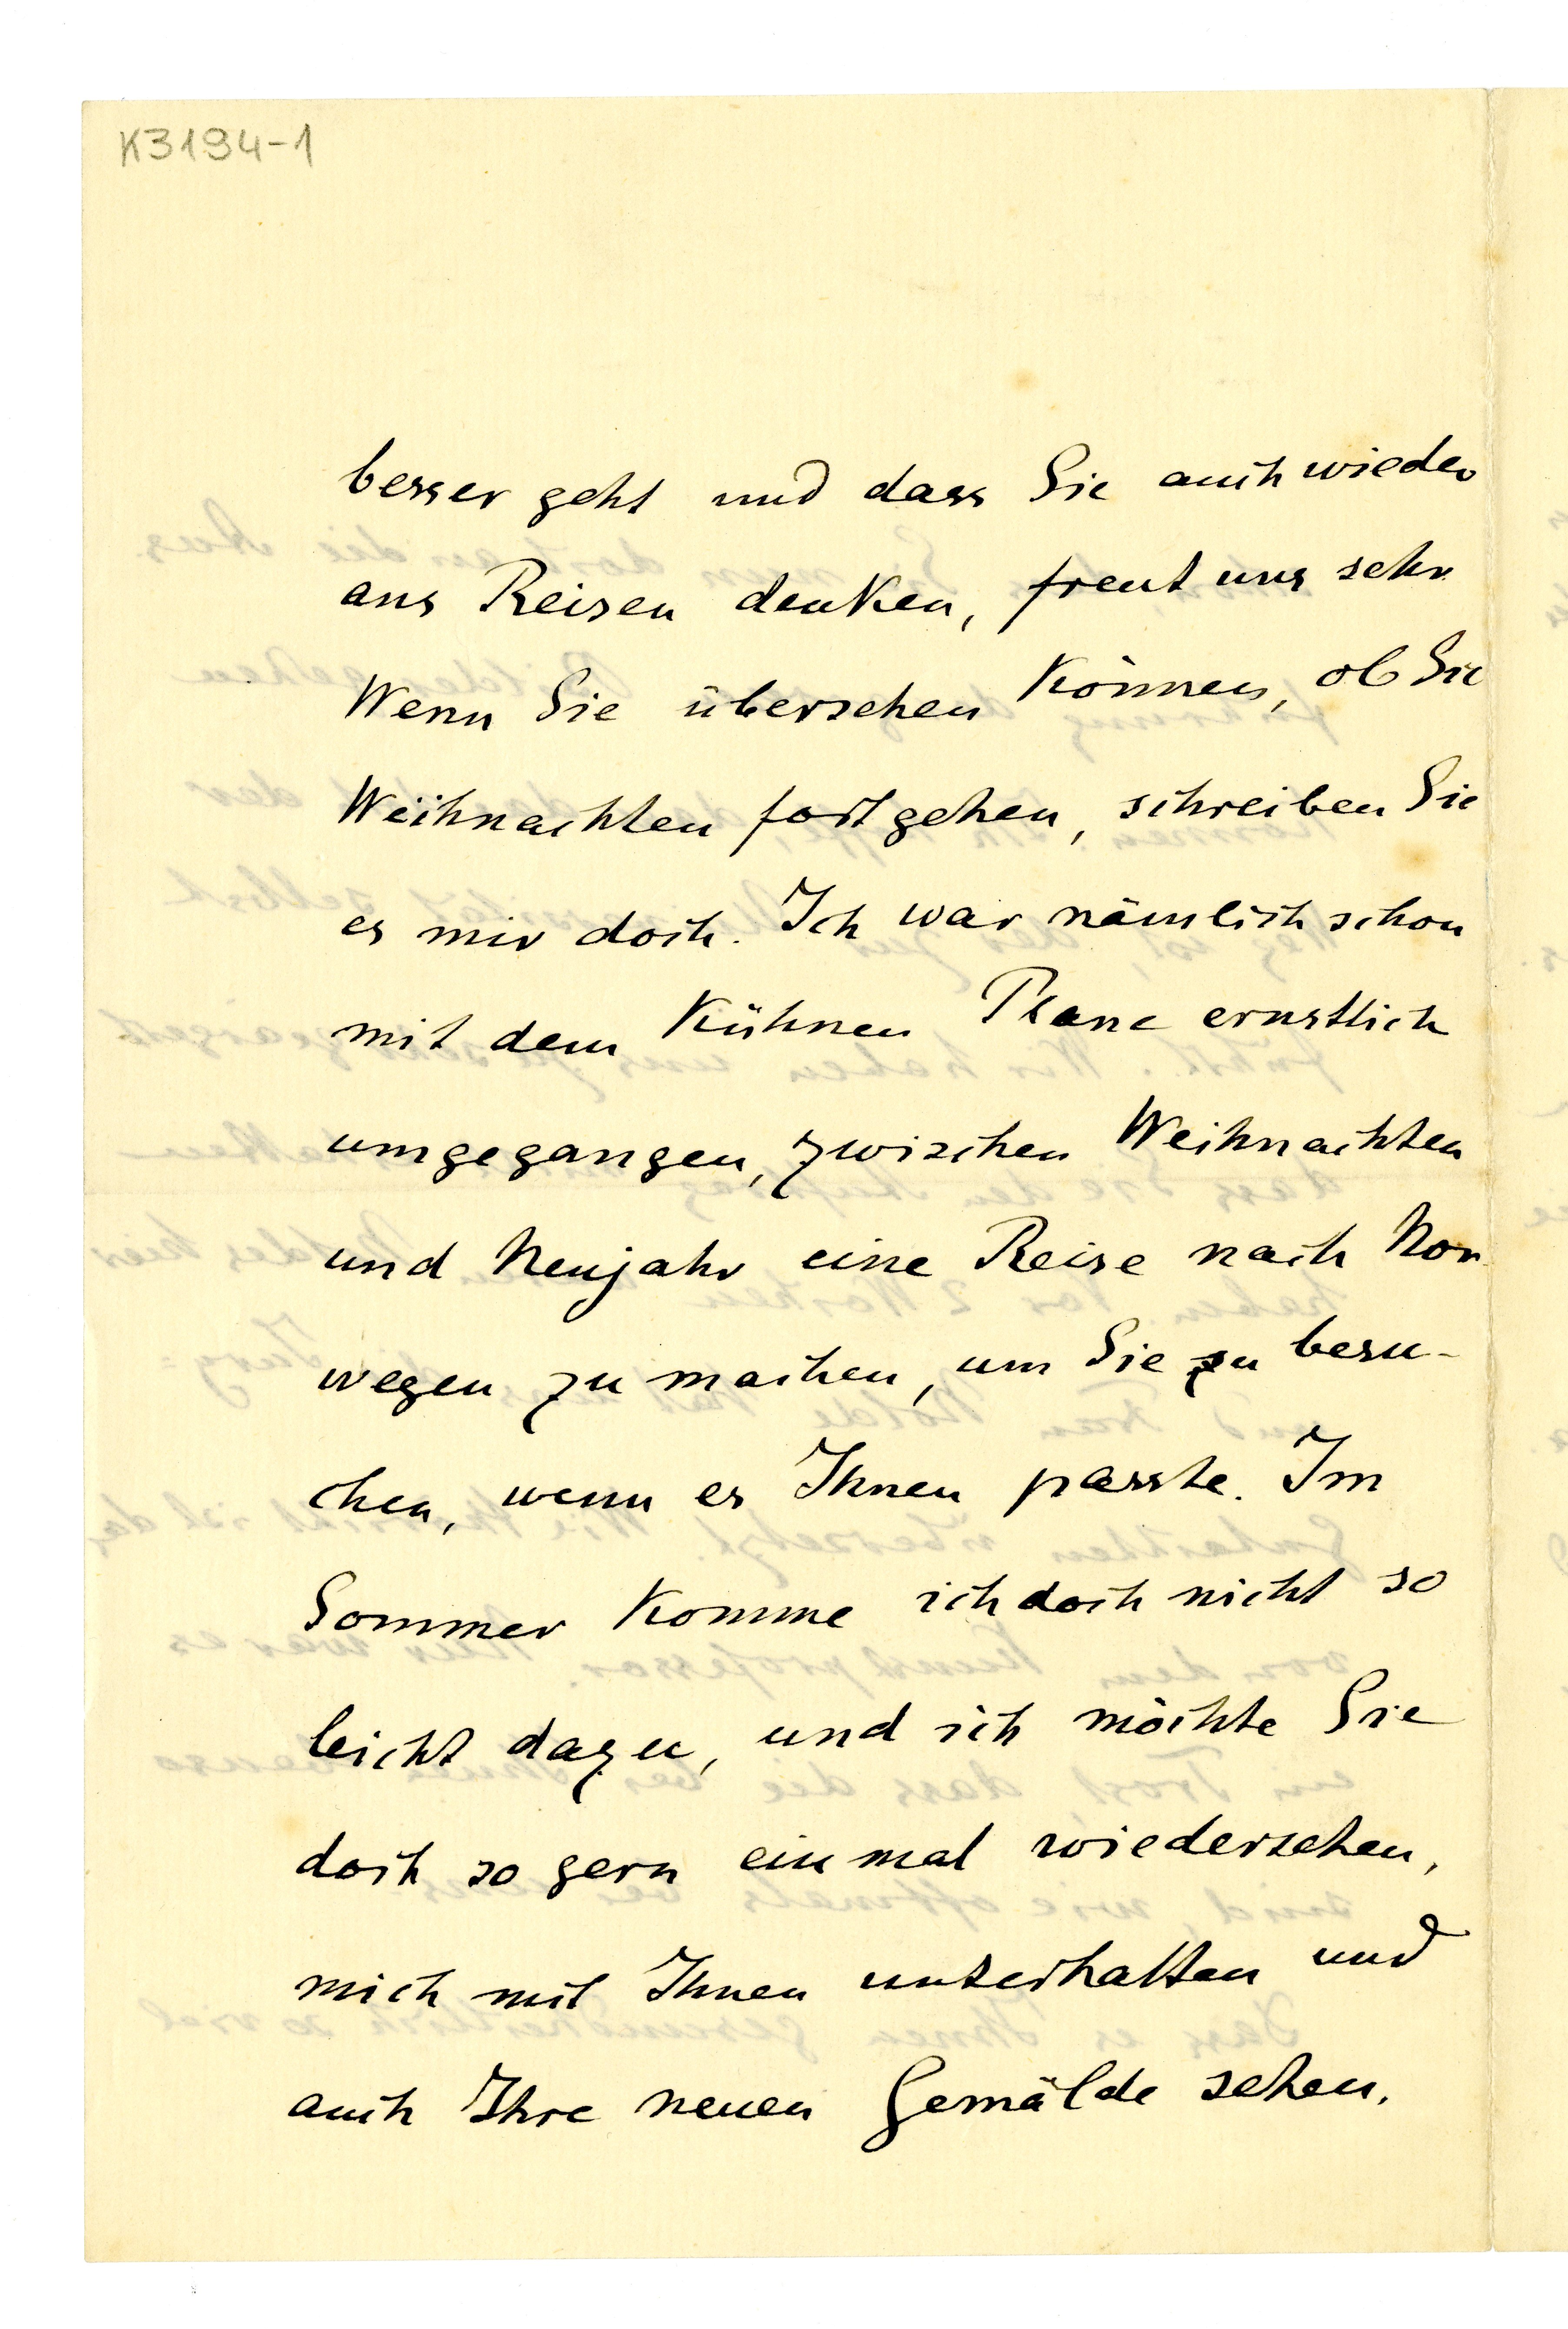 K3194-1
besser geht und dass Sie auch wieder
ans Reisen denken, freut uns sehr.
Wenn Sie übersehen können, ob Sie
Weihnachten fortgehen, schreiben Sie
es mir doch. Ich war nämlich schon
mit dem kühnen Plane ernstlich
umgegangen, zwischen Weihnachten
und Neujahr eine Reise nach Nor-
wegen zu machen, um Sie zu besu-
chen, wenn es Ihnen passte. Im
Sommer komme ich doch nicht so
leicht dazu, und ich möchte Sie
doch so gern einmal wiedersehen,
mich mit Ihnen unterhalten und
auch Ihre neuen Gemälde sehen.